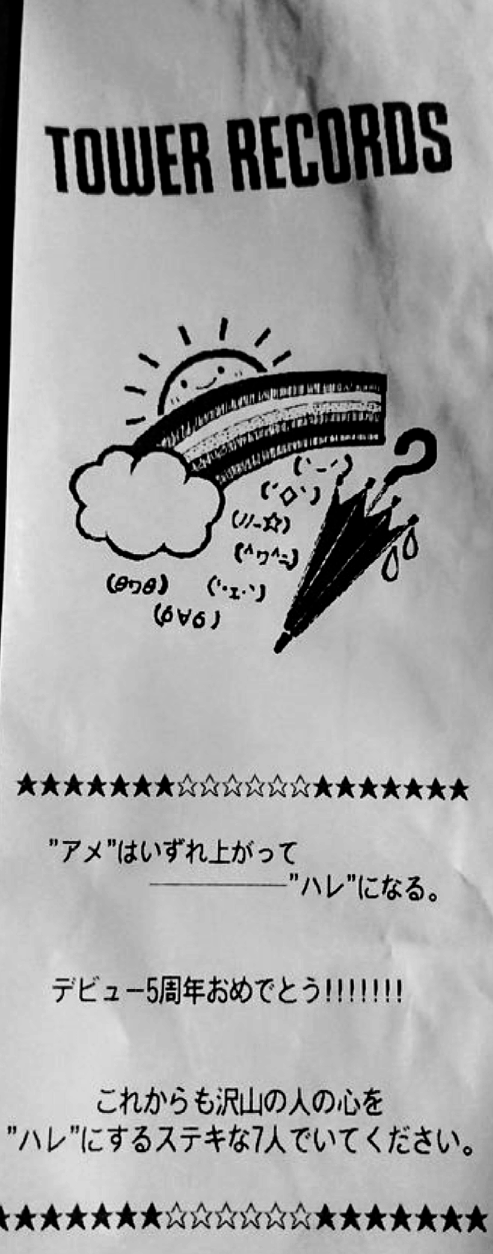 TOWER RECORDS
(´-`)
(´◇`)
(//-☆)
(^ワ^=)
(θワθ)
(´･ｪ･`)
(6∀6)
★★★★★★★☆☆☆☆☆☆★★★★★★★
"アメ"はいずれ上がって
――――――"ハレ"になる。
デビュー5周年おめでとう!!!!!!!
これからも沢山の人の心を
"ハレ"にするステキな7人でいてください。
★★★★★★★☆☆☆☆☆☆★★★★★★★